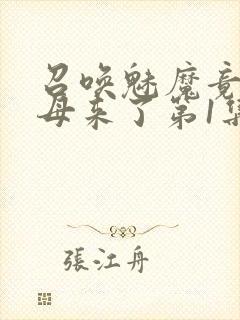 召唤魅魔竟
母来了第1集
張江舟